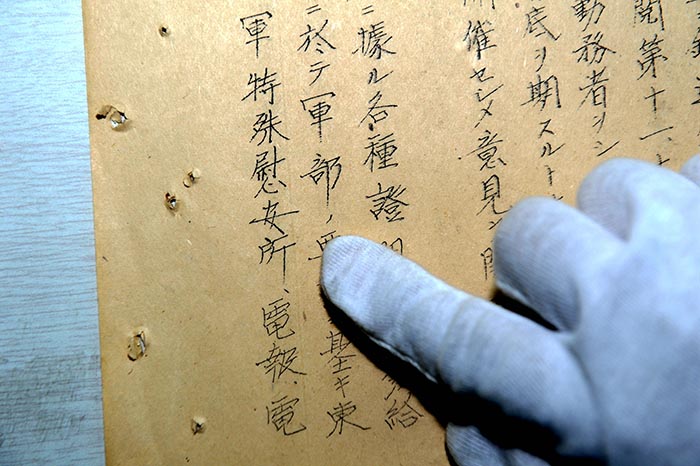 第十一、
勤務者ヲシ
底ヲ期スルト
開催セシメ意見ヲ
ニ據ル各種證 給
ニ於テ軍部ノ 基キ東
軍特殊慰安所、電報、電